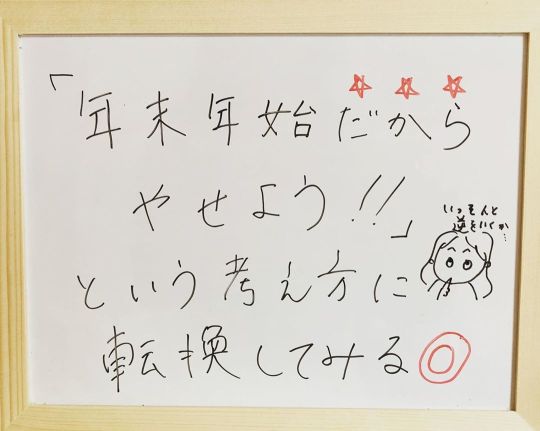 「年末年始だから
やせよう!!」
という考え方に
転換してみる◎
いっそんと
逆をいくか…